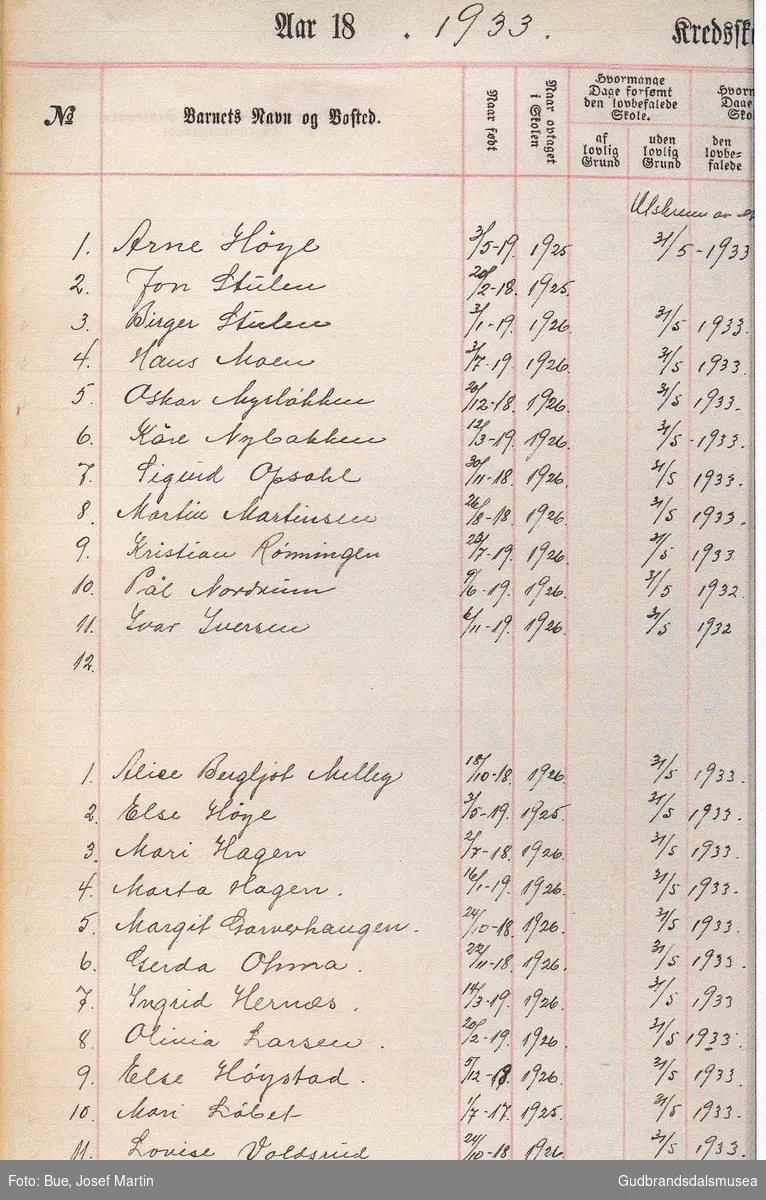 Aar 18 . 1933. Kredssk
№ Barnets Navn og Bosted. Naar født Naar optaget i Skolen Hvormange Dage forsømt den lovbefalede Skole. af lovlig Grund uden lovlig Grund Hvorm Dage Sko den lovbe- falede
Utskreven av
1. Arne Høye 3/5-19. 1925 31/5-1933
2. Jon Stulen 20/2-18. 1925.
3. Birger Stulen 3/1-19. 1926 31/5 1933.
4. Hans Moen 3/7-19. 1926. 31/5 1933.
5. Oskar Myrløkken 20/12-18. 1926. 31/5 1933.
6. Kåre Nybakken 12/3-19. 1926. 31/5-1933.
7. Sigurd Opsahl 30/11-18. 1926. 31/5 1933.
8. Martin Martinsen 26/8-18. 1926. 31/5 1933.
9. Kristian Rønningen 23/7-19. 1926. 31/5 1933
10. Pål Nordrum 9/6-19. 1926. 31/5 1932.
11. Ivar Iversen 6/11-19. 1926. 31/5 1932
12.
1. Alice Bergljot Melby 18/10-18. 1926. 31/5 1933.
2. Else Høye 3/5-19. 1925. 31/5 1933.
3. Mari Hagen 2/7-18. 1926. 31/5 1933.
4. Marta Hagen. 16/1-19. 1926. 31/5 1933.
5. Margit Garverhaugen. 24/10-18. 1926. 31/5 1933.
6. Gerda Ohma. 22/11-18. 1926. 31/5 1933.
7. Ingrid Hernæs. 14/3-19. 1926. 31/5 1933
8. Olivia Larsen. 20/2-19. 1926. 31/5 1933.
9. Else Høystad. 5/12-18. 1926. 31/5 1933.
10. Mari Løbet 1/7-17. 1925. 31/5 1933.
11. Lovise Voldsrud 24/10-18 1926. 31/5 1933.
Foto: Bue, Josef Martin Gudbrandsdalsmusea